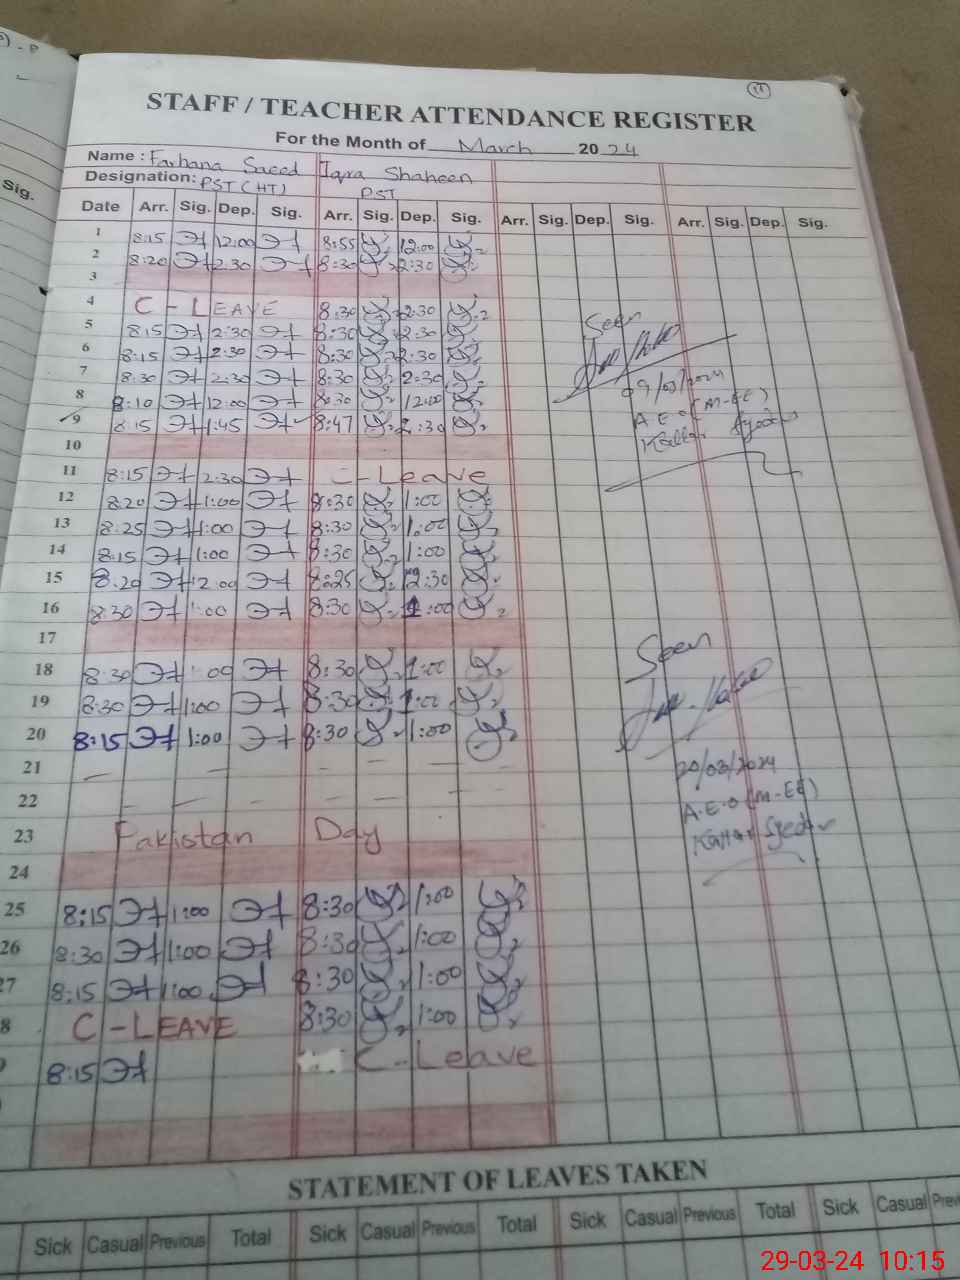 11
STAFF / TEACHER ATTENDANCE REGISTER
For the Month of March 2024
Name : Farhana Saeed Iqra Shaheen
Designation: PST (HT) PST
Sig.
Date Arr. Sig. Dep. Sig. Arr. Sig. Dep. Sig. Arr. Sig. Dep. Sig. Arr. Sig. Dep. Sig.
1 8:15 12:00 8:55 12:00
2 8:20 2:30 8:30 2:30
3
4 C - LEAVE 8:30 2:30
5 8:15 2:30 8:30 2:30
6 8:15 2:30 8:30 2:30
7 8:30 2:30 8:30 2:30
8 8:10 12:00 8:30 12:00
9 8:15 1:45 8:47 2:30
Seen
09/03/2024
A.E.O (M-EE)
Kallar Syedan
10
11 8:15 2:30 C - Leave
12 8:20 1:00 8:30 1:00
13 8:25 1:00 8:30 1:00
14 8:15 1:00 8:30 1:00
15 8:20 12:00 8:25 2:30
16 8:30 1:00 8:30 1:00
17
18 8:30 1:00 8:30 1:00
19 8:30 1:00 8:30 1:00
20 8:15 1:00 8:30 1:00
Seen
20/03/2024
A.E.O (M-EE)
Kallar Syedan
21 — — — — —
22 — — — — —
23 Pakistan Day
24
25 8:15 1:00 8:30 1:00
26 8:30 1:00 8:30 1:00
27 8:15 1:00 8:30 1:00
8 C - LEAVE 8:30 1:00
8:15 C - Leave
STATEMENT OF LEAVES TAKEN
Sick Casual Previous Total Sick Casual Previous Total Sick Casual Previous Total Sick Casual Prev
29-03-24 10:15